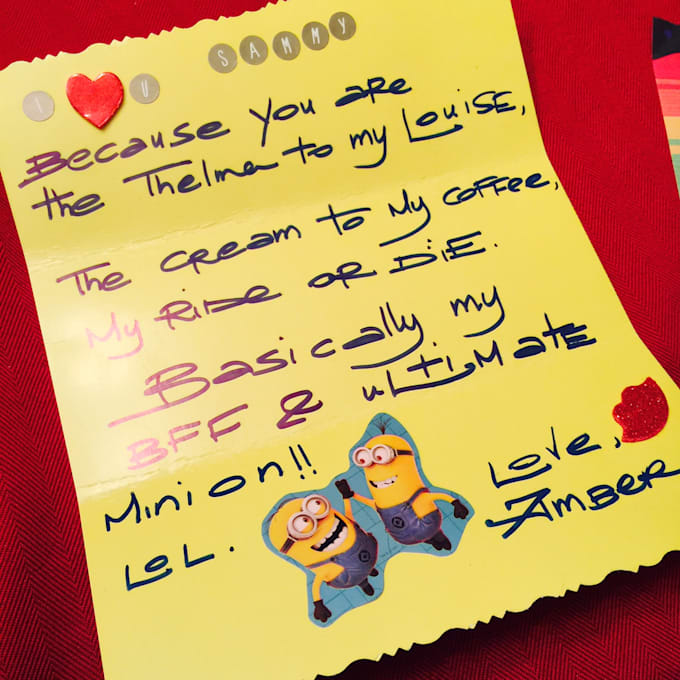 I U SAMMY
Because you are
the Thelma to my Louise,
The cream to My coffee,
My Ride or Die.
Basically my
BFF & ultimate
Minion!!
LOL.
Love,
Amber